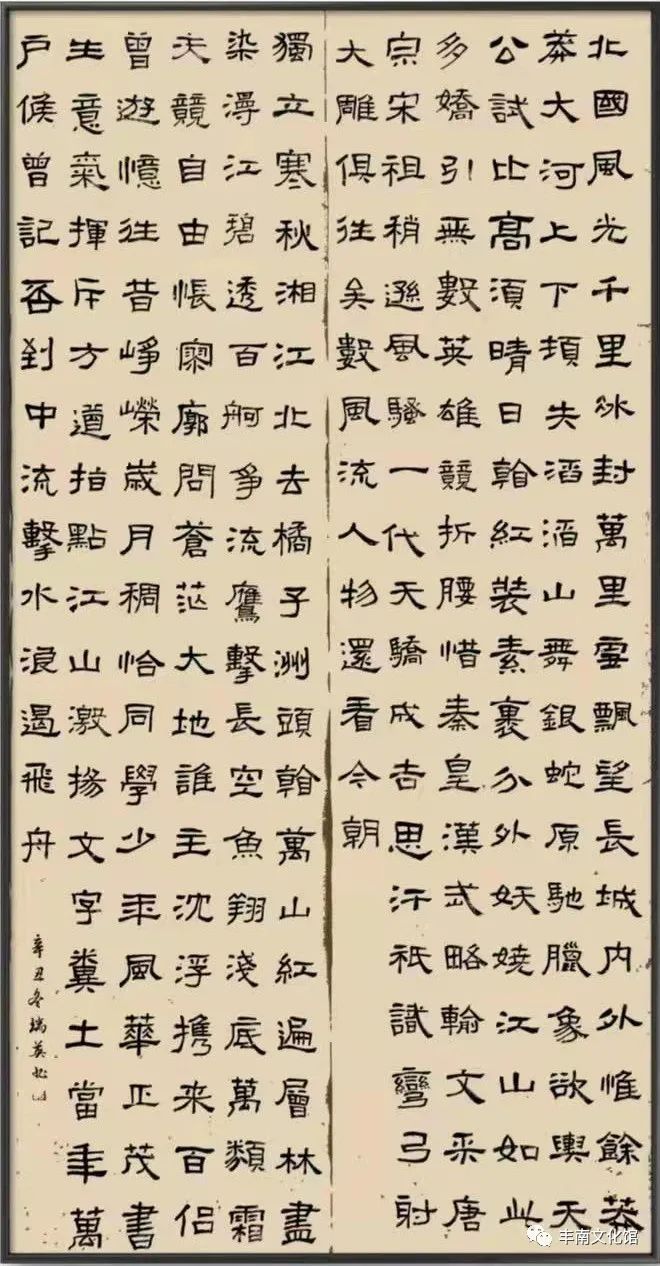 北國風光千里冰封萬里雪飄望長城內外惟餘莽
莽大河上下頓失滔滔山舞銀蛇原馳臘象欲與天
公試比高須晴日看紅裝素裹分外妖嬈江山如此
多嬌引無數英雄競折腰惜秦皇漢武略輸文采唐
宗宋祖稍遜風騷一代天驕成吉思汗祇識彎弓射
大雕俱往矣數風流人物還看今朝
獨立寒秋湘江北去橘子洲頭看萬山紅遍層林盡
染漫江碧透百舸爭流鷹擊長空魚翔淺底萬類霜
天競自由悵寥廓問蒼茫大地誰主沈浮携來百侶
曾遊憶往昔崢嶸歲月稠恰同學少年風華正茂書
生意氣揮斥方遒指點江山激揚文字糞土當年萬
戶侯曾記否到中流擊水浪遏飛舟
辛丑冬瑞英
丰南文化馆